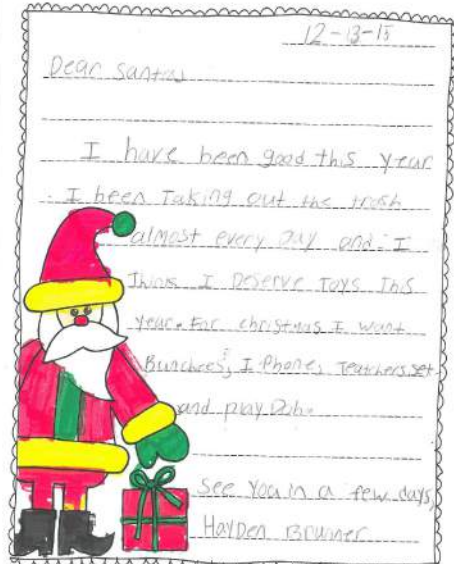 12-13-15
Dear Santa
I have been good this year
I been Taking out the trash
almost every day and I
Think I Deserve Toys This
year. For christmas I want
Bunchees, I Phone, Teatchers set
and play Doh.
See You in a few days,
Hayden Brunner